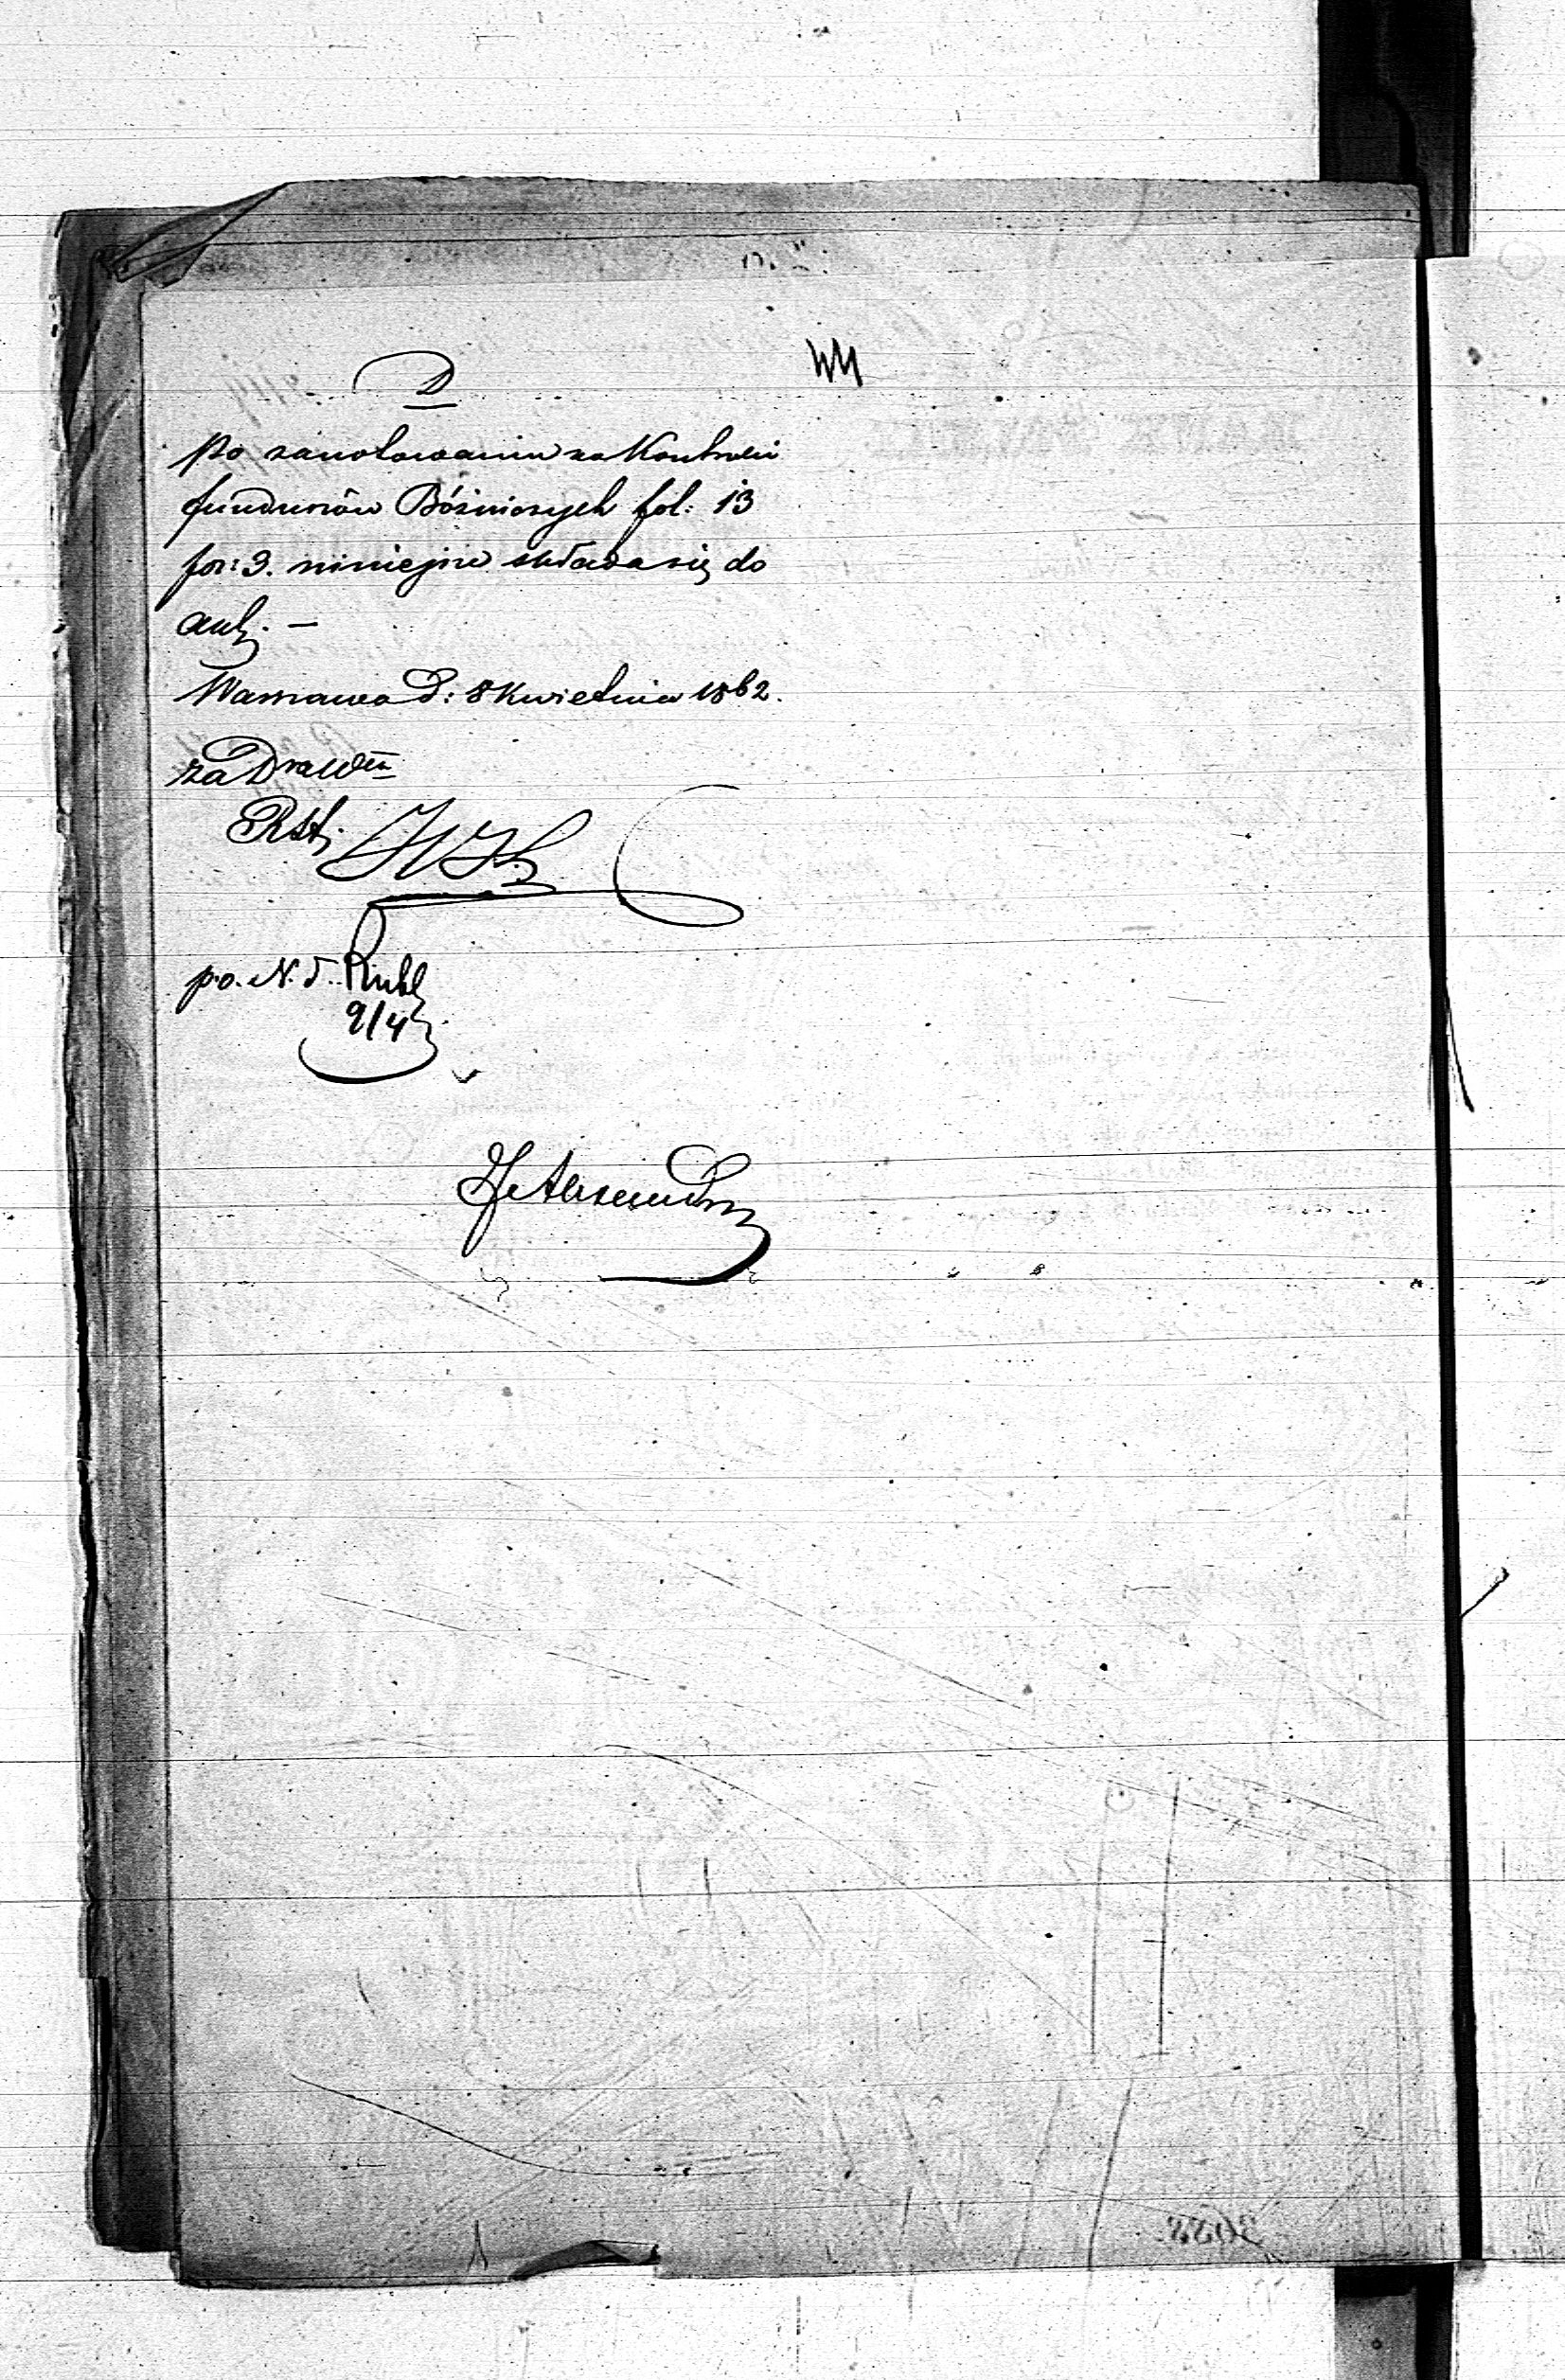 D
po zanotowaniu na Kontroli
funduszów Bóżniczych fol: 13
for: 3. niniejsze składa się do
akt. —
Warszawa d: 8 Kwietnia 1862.
za
Rst.
p.o. N. d.
9/4